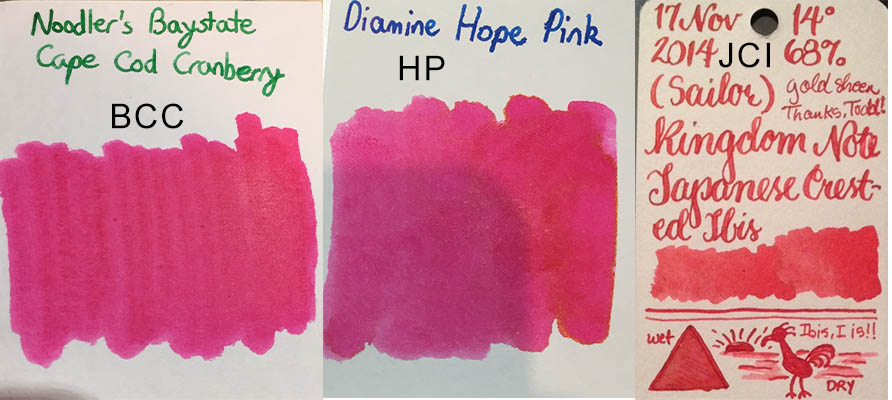 Noodler's Baystate
Cape Cod Cranberry
BCC
Diamine Hope Pink
HP
17 Nov 14°
2014 JCI 68%
(Sailor) gold sheen
Thanks, Todd!
Kingdom Note
Japanese Crest-
ed Ibis
wet
Ibis, I is!!
DRY